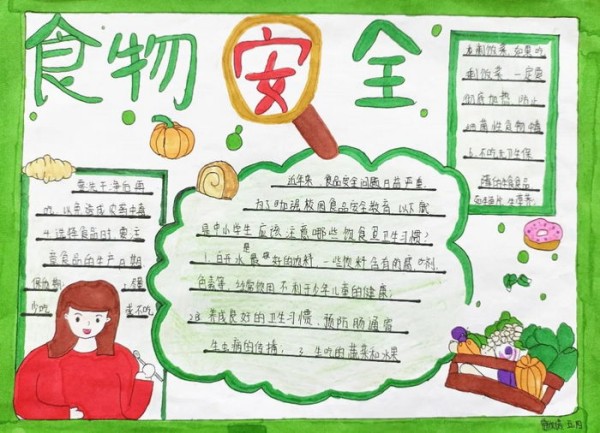 食物安全
近年来，食品安全问题日益严重.
为了加强校园食品安全教育 以下就
是中小学生应该注意哪些饮食卫生习惯？
1.白开水是最好的饮料，一些饮料含有防腐剂、
色素等，经常饮用不利于少年儿童的健康；
2. 养成良好的卫生习惯，预防肠道寄
生虫病的传播； 3. 生吃的蔬菜和水果
要洗干净后再
吃，以免造成农药中毒
4.选择食品时，要注
意食品的生产日期
保质期；
少吃
或不吃
剩饭菜，如果吃
剩饭菜，一定要
彻底加热，防止
细菌性食物中毒
6.不吃无卫生保
食品